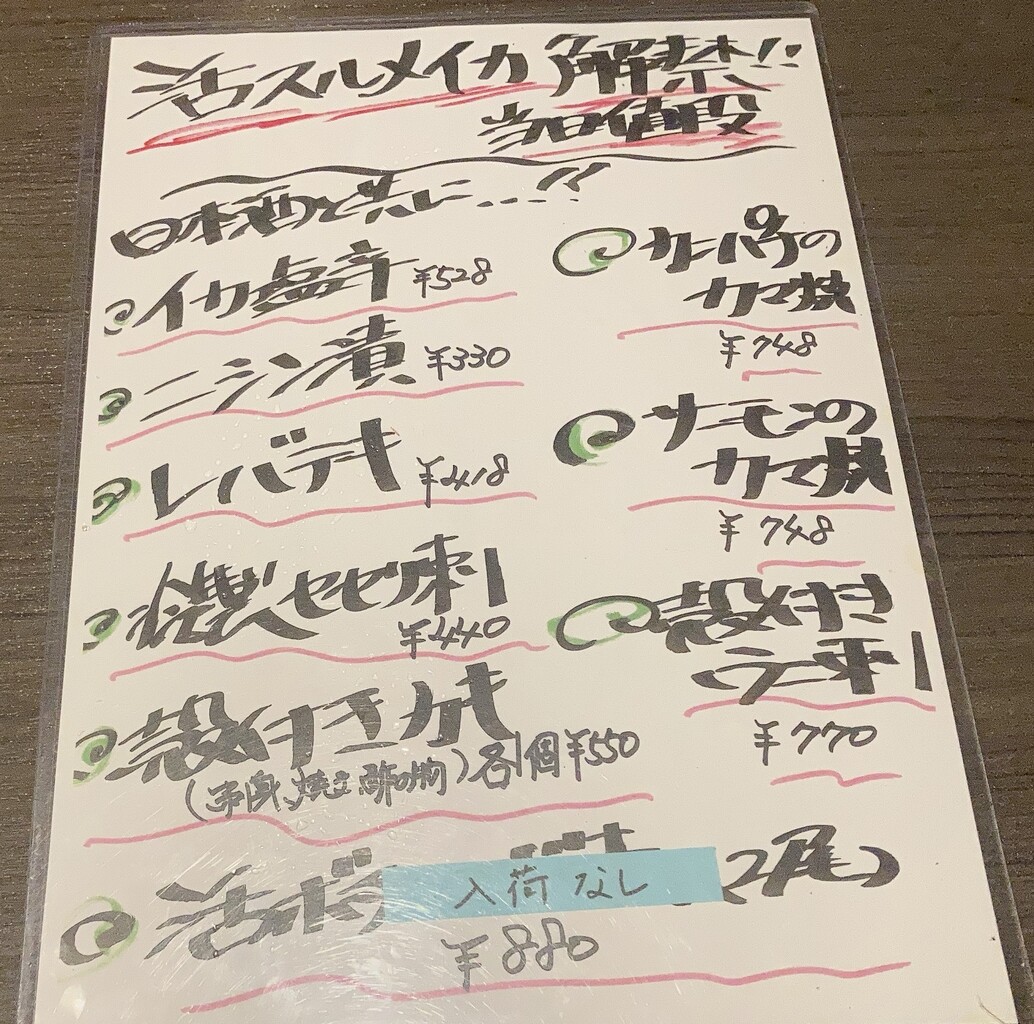 活スルメイカ 解禁!!
当日値段
日本酒と共に...!!
イカ塩辛 ¥528
ニシン漬 ¥330
レバテキ ¥418
燻製セセリ刺
¥440
殻付きカキ
(刺身、焼き、酢の物) 各1個¥550
カンパチの
カマ焼
¥748
サーモンの
カマ焼
¥748
殻付き
ウニ刺
¥770
活ボ (2尾)
入荷なし
¥880